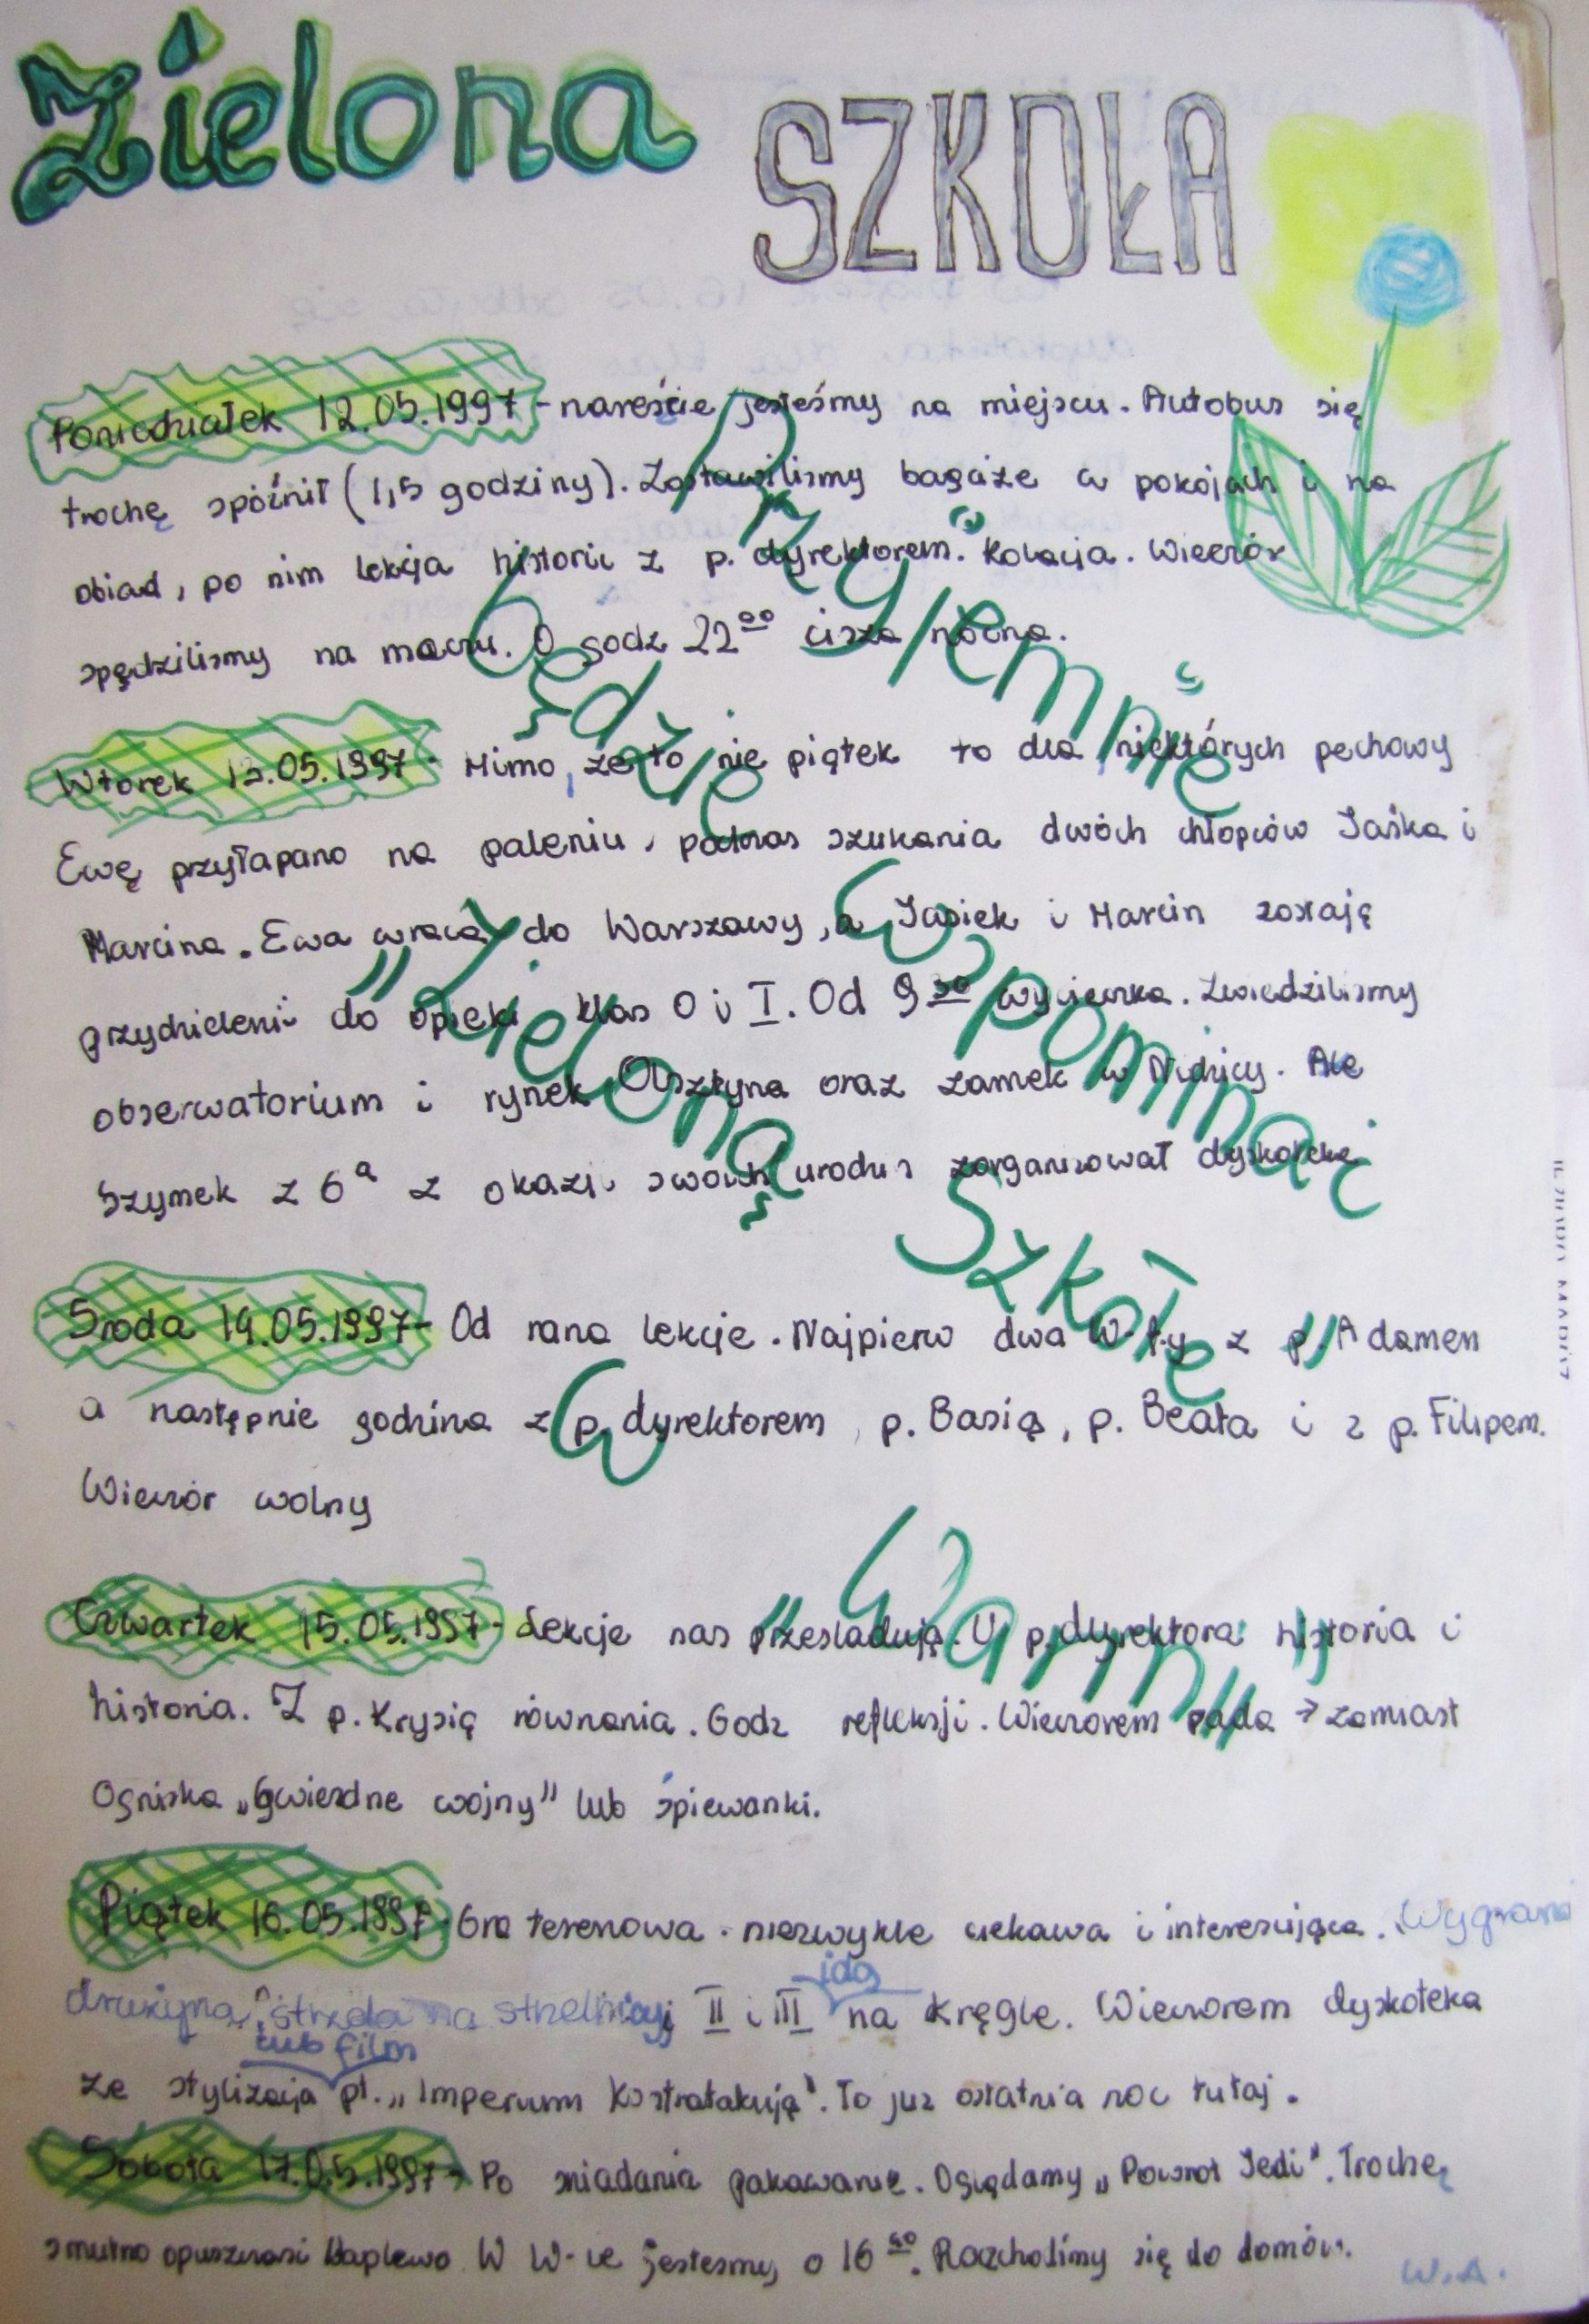 Zielona
SZKOŁA
Poniedziałek 12.05.1997 - nareście jesteśmy na miejscu. Autobus się
trochę spóźnił (1,5 godziny). Zostawiliśmy bagaże w pokojach i na
obiad, po nim lekcja historii z p. dyrektorem. Kolacja. Wieczór
spędziliśmy na meczu. O godz 22⁰⁰ cisza nocna.
Wtorek 13.05.1997 - Mimo, że to nie piątek to dla niektórych pechowy
Ewę przyłapano na paleniu, podczas szukania dwóch chłopców Jaśka i
Marcina. Ewa wraca do Warszawy, a Jasiek i Marcin zostają
przydzieleni do opieki klas 0 i I. Od 9³⁰ wycieczka. Zwiedziliśmy
obserwatorium i rynek Olsztyna oraz zamek w Nidzicy. Ale
Szymek z 6ᵃ z okazji swoich urodzin zorganizował dyskotekę
Środa 14.05.1997 - Od rana lekcje. Najpierw dwa W-f-y z p. Adamem
a następnie godzina z p. dyrektorem, p. Basią, p. Beatą i z p. Filipem.
Wieczór wolny
Czwartek 15.05.1997 - Lekcje nas prześladują. U p. dyrektora historia i
historia. Z p. Krysią równania. Godz refleksji. Wieczorem pada → zamiast
Ogniska „Gwiezdne wojny" lub śpiewanki.
Piątek 16.05.1997 - Gra terenowa - niezwykle ciekawa i interesująca. Wygrana
idą
drużyna strzela na strzelnicy, II i III na Kręgle. Wieczorem dyskoteka
lub film
ze stylizacją pt. „Imperium Kontratakują". To już ostatnia noc tutaj.
Sobota 17.05.1997 - Po śniadania pakawanie. Oglądamy „Powrót Jedi". Trochę
smutno opuszczasi Waplewo. W W-ie jesteśmy o 16 . Rozchodimy się do domów.
W.A.
Przyjemnie
będzie
Wspominać
„Zieloną
Szkołę"
W
„Warmii"